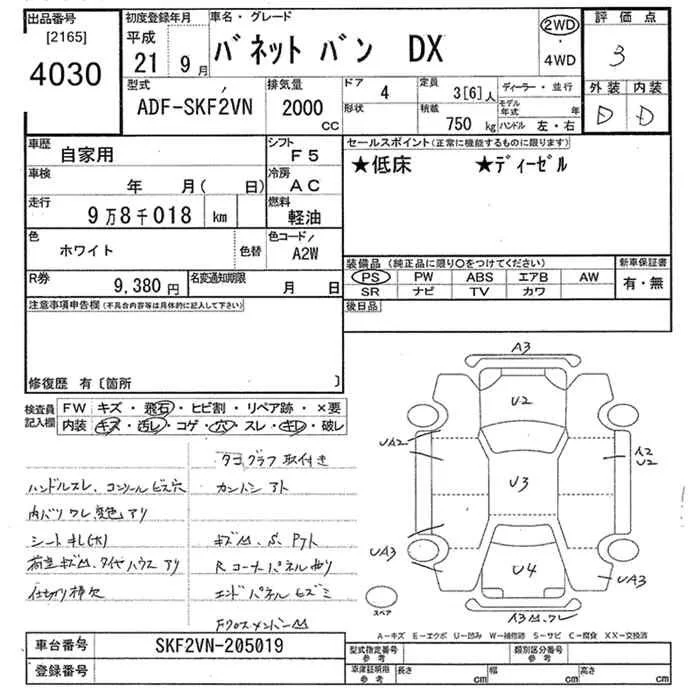 出品番号 [2165] 4030
初度登録年月 平成 21 9月
車名・グレード バネット バン DX
2WD ・ 4WD
評価点 3
外装 D 内装 D
型式 ADF-SKF2VN
排気量 2000 CC
ドア 4
形状
定員 3[6]人
積載 750 kg
ディーラー・並行
モデル年式 年
ハンドル 左・右
車歴 自家用
シフト F5
車検 年 月( 日)
冷房 AC
走行 9万8千018 km
燃料 軽油
色 ホワイト 色替
色コード A2W
R券 9,380円
名変通知期限 月 日
セールスポイント(正常に機能するものに限ります)
★低床 ★ディーゼル
装備品(純正品に限り○をつけてください)
PS PW ABS エアB AW
SR ナビ TV カワ
新車保証書 有・無
後日品
注意事項申告欄(不具合内容等は具体的に記入して下さい)
修復歴 有〔箇所 〕
検査員記入欄
FW キズ・飛石・ヒビ割・リペア跡・×要
内装 キズ・汚レ・コゲ・穴・スレ・キレ・破レ
タコグラフ取付き
ハンドルスレ、コンソールビス穴
シートキレ(大)
Rコーナーパネル曲り
A3
U2
UA2
A2
U2
U3
UA3
U4
UA3
スペア
A－キズ E－エクボ U－凹み W－補修跡 S－サビ C－腐食 XX－交換済
車台番号 SKF2VN-205019
登録番号
型式指定番号 参考
類別区分番号 参考
車庫証明用 参考
長さ cm 幅 cm 高さ cm